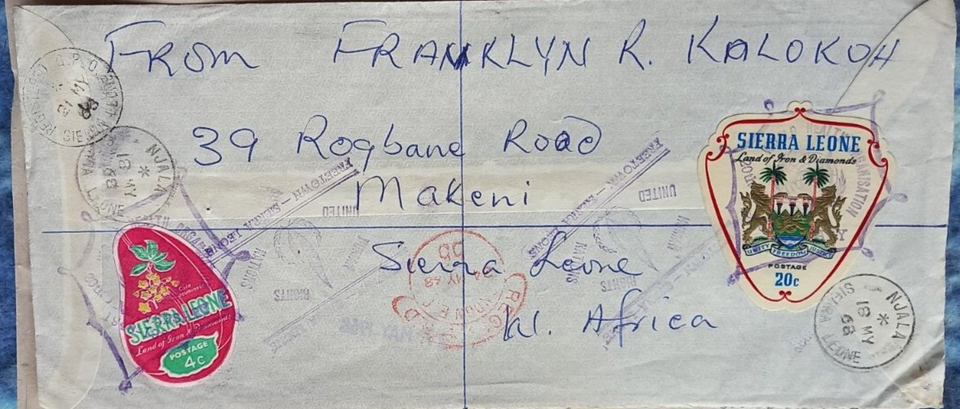 FROM FRANKLYN R. KALOKOH
39 Rogbane Road
Makeni
Sierra Leone
W. Africa
SIERRA LEONE
Land of Iron & Diamonds
UNITY FREEDOM JUSTICE
POSTAGE
20c
SIERRA LEONE
Land of Iron & Diamonds
POSTAGE
4c
NJALA
18 MY
68
SIERRA LEONE
NJALA
18 MY
68
SIERRA LEONE
FREETOWN — SIERRA LEONE
UNITED
NATIONS
HUMAN
RIGHTS
FREETOWN — SIERRA LEONE
UNITED
HUMAN
RIGHTS